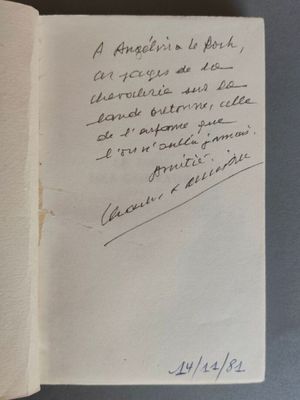 A Angélina le Roch,
ces pages de la
chevalerie sur la
lande bretonne, celle
de l'enfance que
l'on n'oublie jamais.
Amitié.
14/11/81